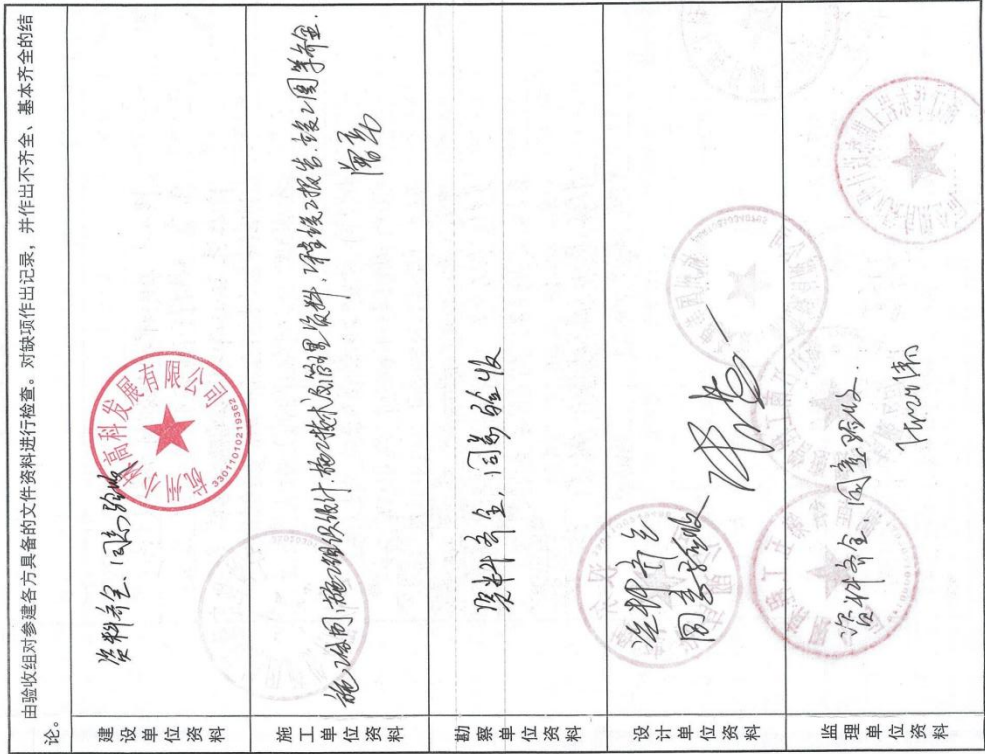 由验收组对参建各方具备的文件资料进行检查。对缺项作出记录，并作出不齐全、基本齐全的结
论。
建设单位资料
资料齐全、同意验收
高科发展有限公司
杭州小
33011010219362
施工单位资料
施工合同、施工组织设计、施工技术及管理资料、工程竣工报告、竣工图等齐全.
勘察单位资料
资料齐全，同意验收
设计单位资料
资料齐全
同意验收
监理单位资料
资料齐全、同意验收.